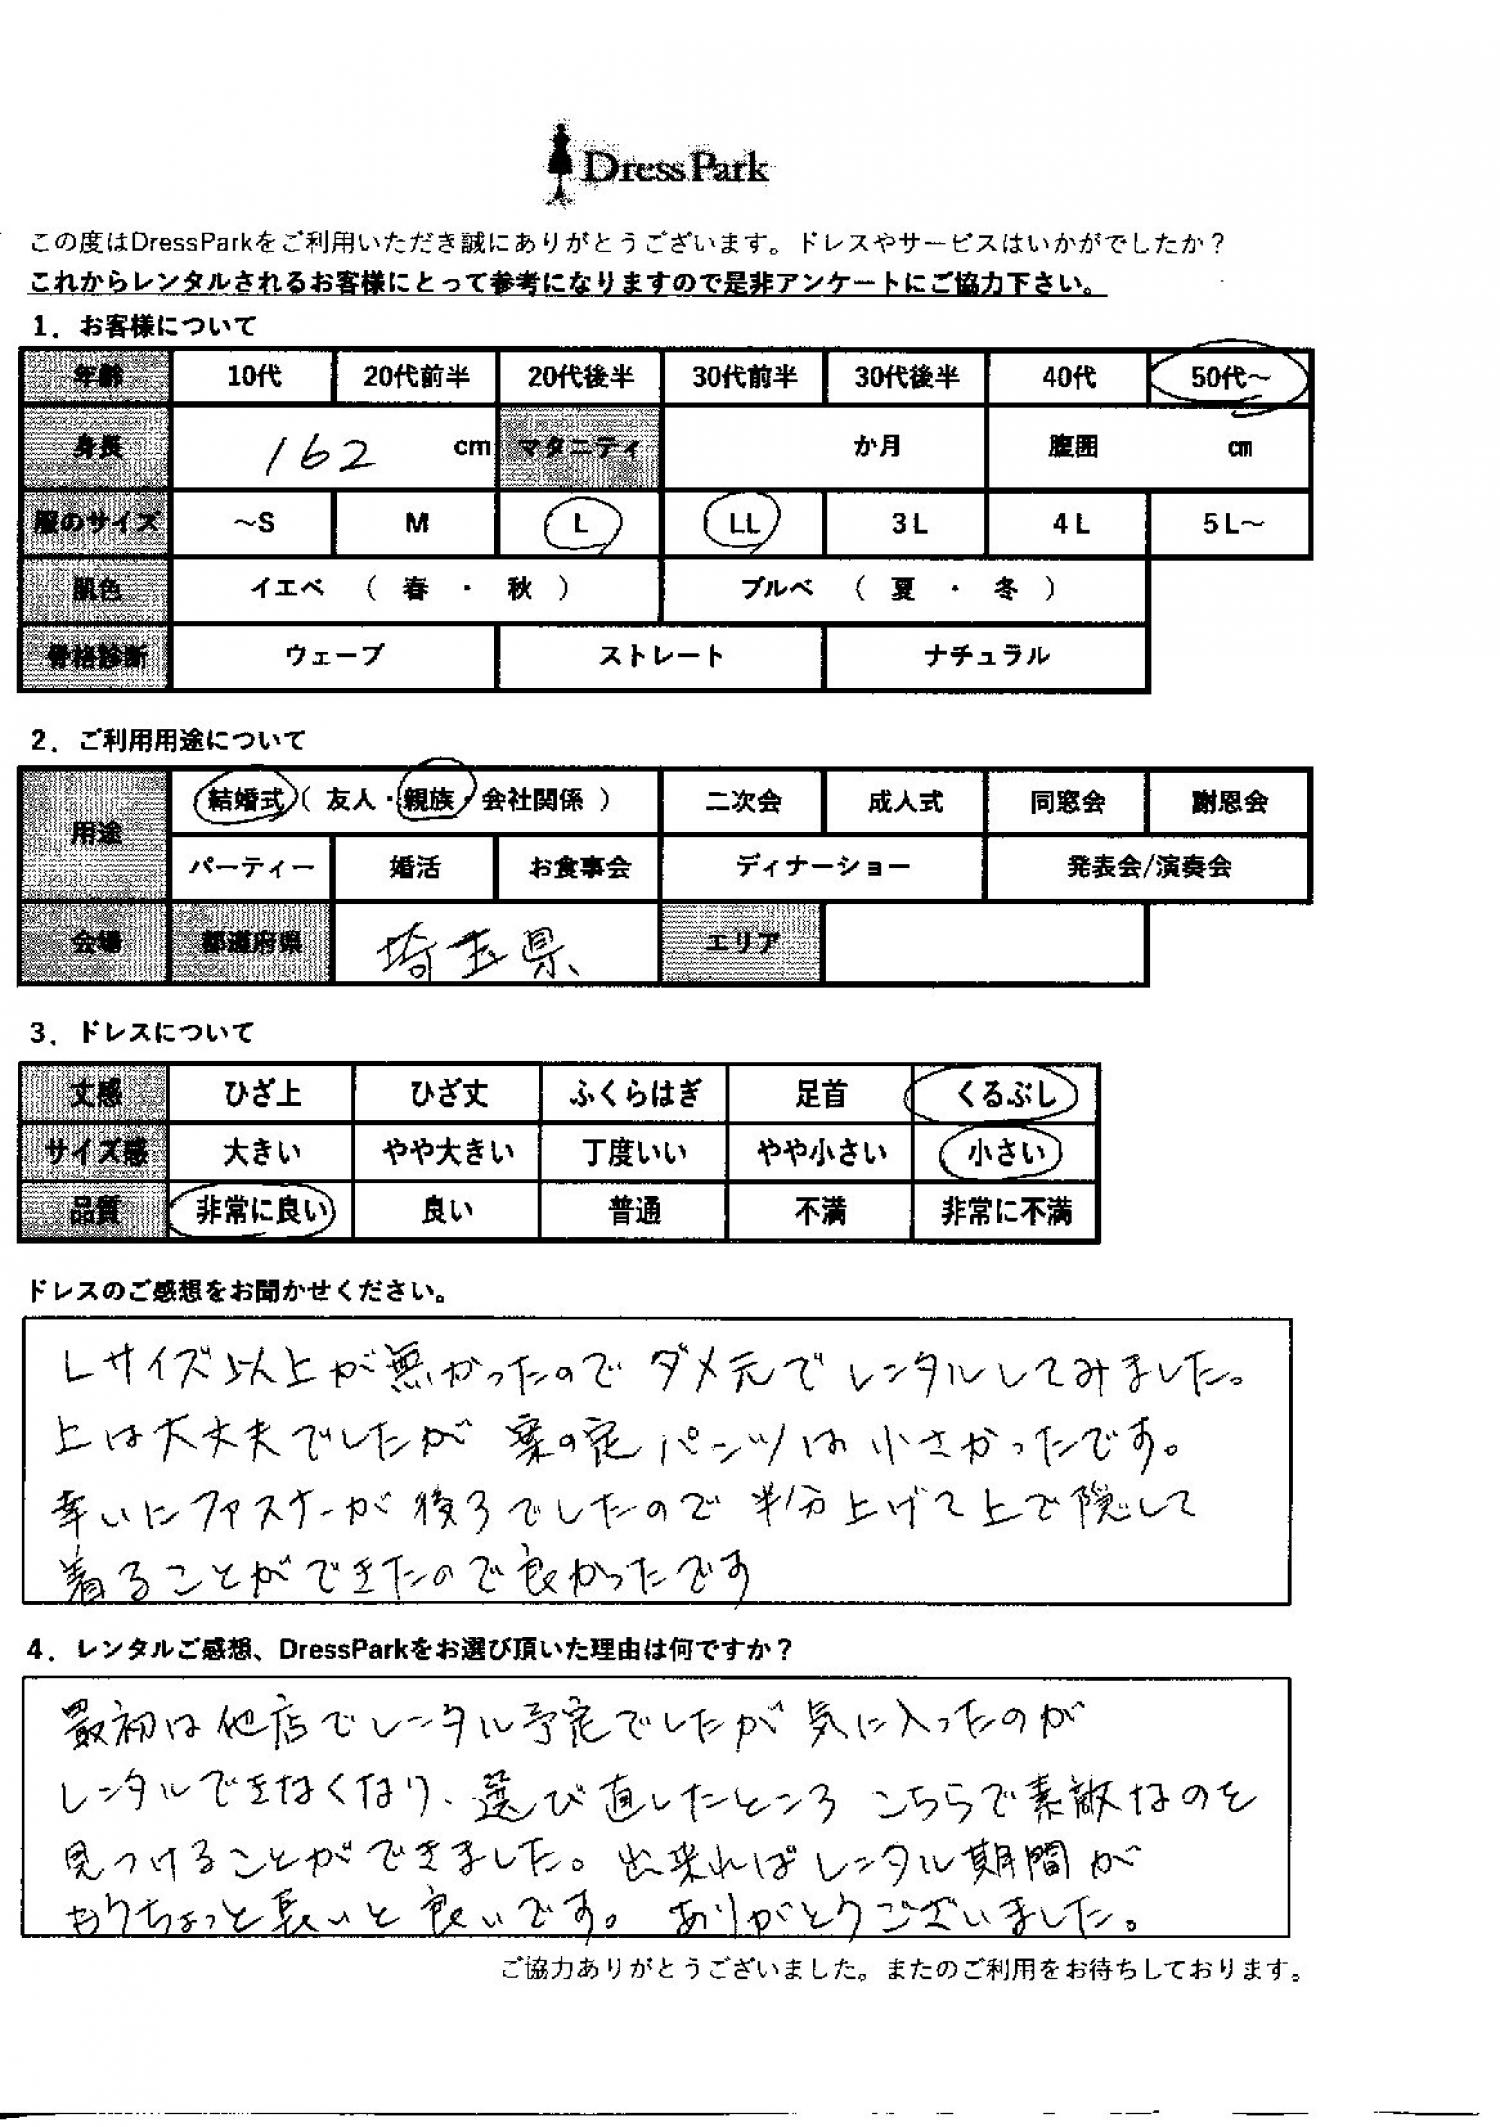 DressPark
この度はDressParkをご利用いただき誠にありがとうございます。ドレスやサービスはいかがでしたか？
これからレンタルされるお客様にとって参考になりますので是非アンケートにご協力下さい。
1．お客様について
年齢 10代 20代前半 20代後半 30代前半 30代後半 40代 50代～
身長 162 cm マタニティ か月 腹囲 cm
服のサイズ ～S M L LL 3L 4L 5L～
肌色 イエベ （ 春 ・ 秋 ） ブルベ （ 夏 ・ 冬 ）
骨格診断 ウェーブ ストレート ナチュラル
2．ご利用用途について
用途 結婚式（ 友人・親族・会社関係 ） 二次会 成人式 同窓会 謝恩会
パーティー 婚活 お食事会 ディナーショー 発表会/演奏会
会場 都道府県 埼玉県 エリア
3．ドレスについて
丈感 ひざ上 ひざ丈 ふくらはぎ 足首 くるぶし
サイズ感 大きい やや大きい 丁度いい やや小さい 小さい
品質 非常に良い 良い 普通 不満 非常に不満
ドレスのご感想をお聞かせください。
Lサイズ以上が無かったのでダメ元でレンタルしてみました。
上は大丈夫でしたが案の定パンツは小さかったです。
幸いにファスナーが後ろでしたので半分上げて上で隠して
着ることができたので良かったです
4．レンタルご感想、DressParkをお選び頂いた理由は何ですか？
最初は他店でレンタル予定でしたが気に入ったのが
レンタルできなくなり、選び直したところこちらで素敵なのを
見つけることができました。出来ればレンタル期間が
もうちょっと長いと良いです。ありがとうございました。
ご協力ありがとうございました。またのご利用をお待ちしております。